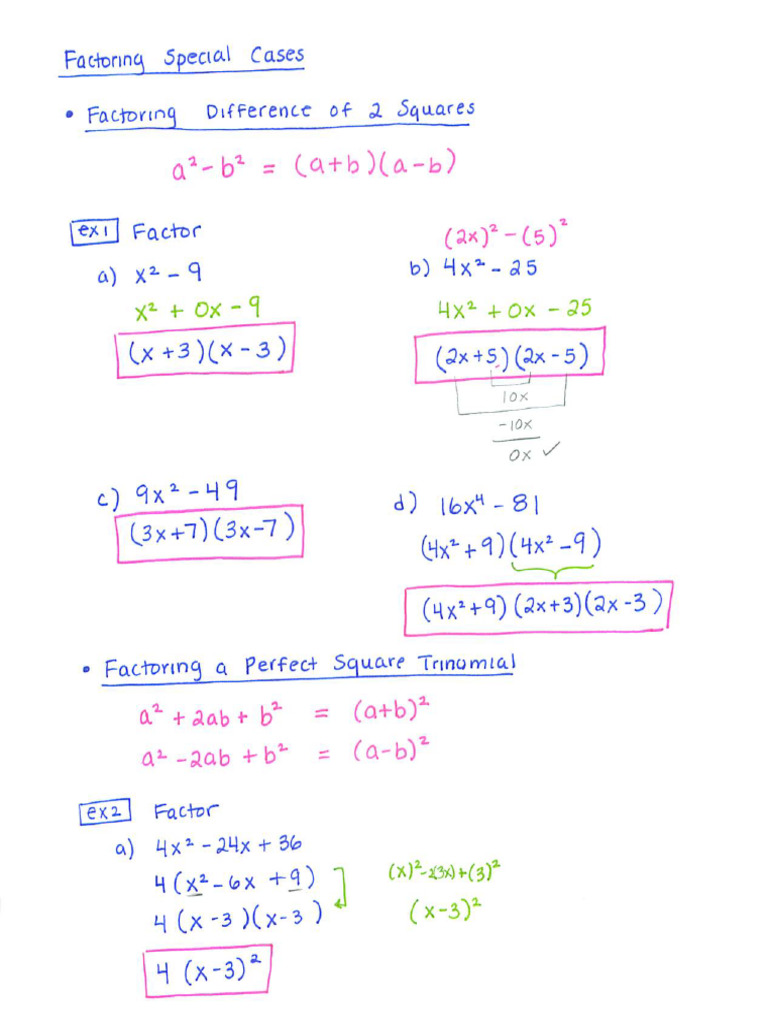 Factoring Special Cases
• Factoring Difference of 2 Squares
a² - b² = (a+b)(a-b)
ex1 Factor
a) x² - 9
x² + 0x - 9
(x+3)(x-3)
(2x)² - (5)²
b) 4x² - 25
4x² + 0x - 25
(2x+5)(2x-5)
10x
-10x
0x ✓
c) 9x² - 49
(3x+7)(3x-7)
d) 16x⁴ - 81
(4x² + 9)(4x² - 9)
(4x²+9)(2x+3)(2x-3)
• Factoring a Perfect Square Trinomial
a² + 2ab + b² = (a+b)²
a² - 2ab + b² = (a-b)²
ex2 Factor
a) 4x² - 24x + 36
4(x² - 6x + 9) (x)² - 2(3x) + (3)²
4(x-3)(x-3) (x-3)²
4(x-3)²